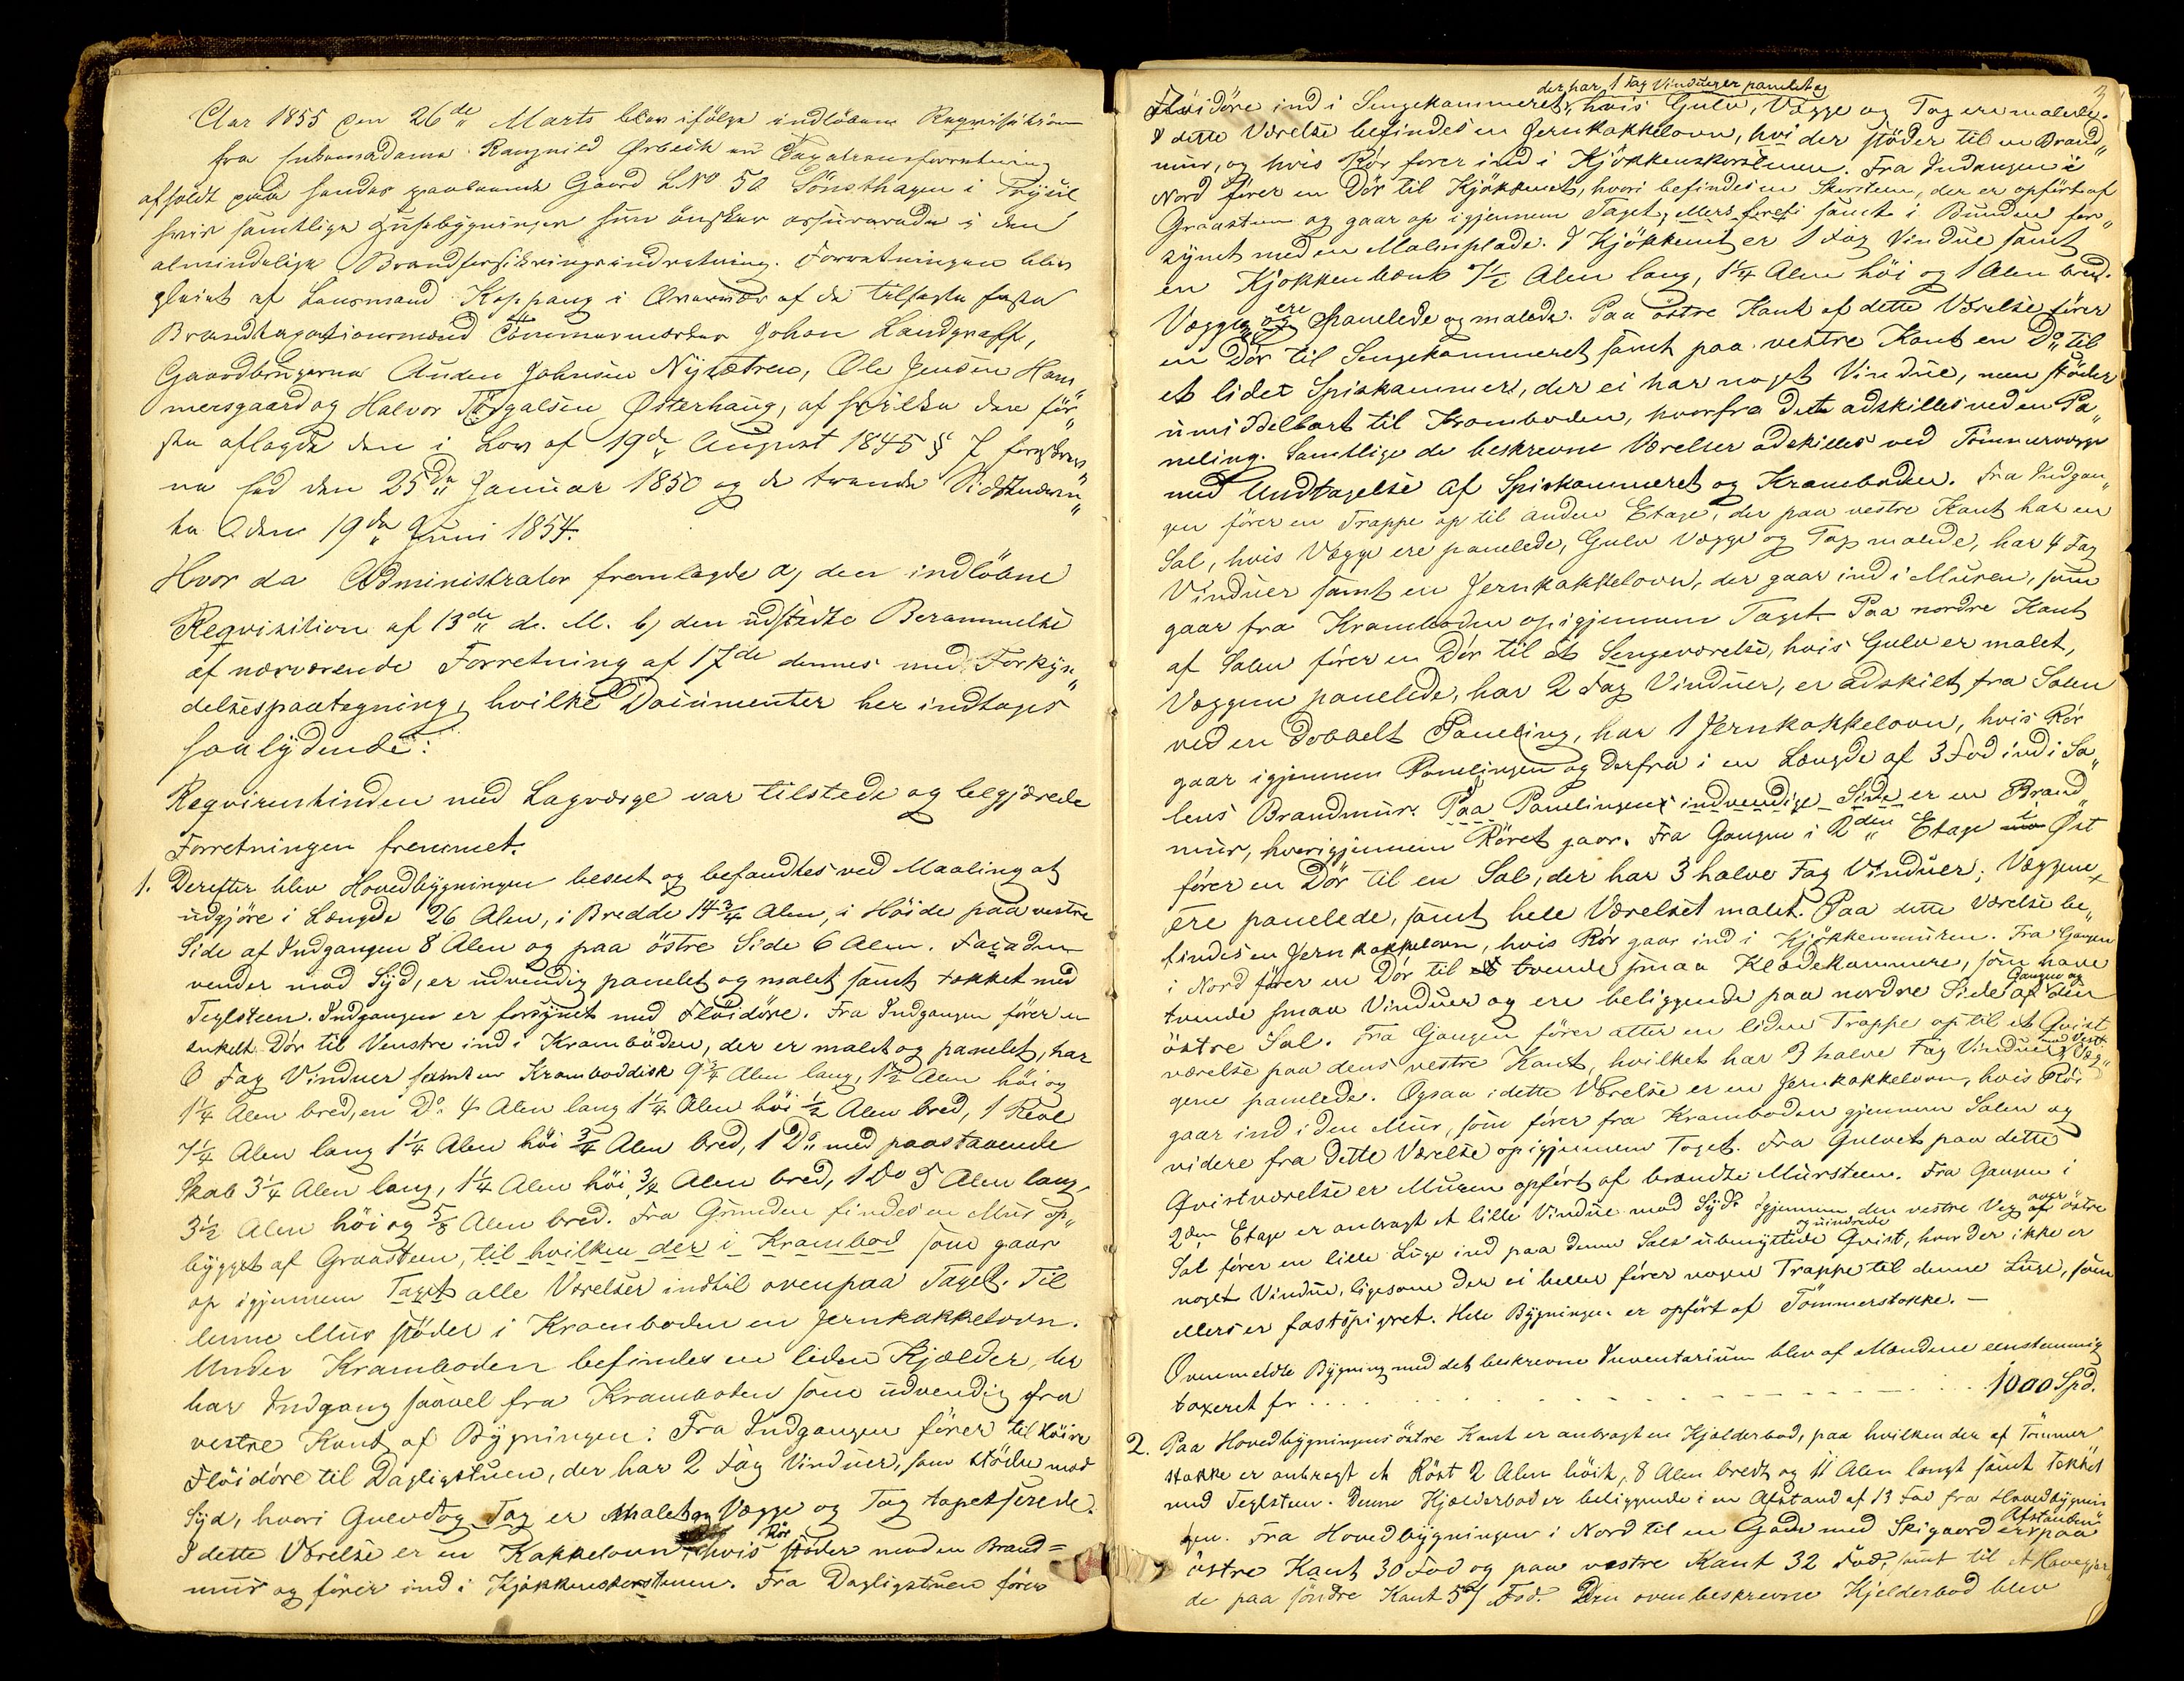 Aar 1855 den 26de Marts blev ifølge indløben Reqvisition
fra Enkemadame Ragnild Ørbech en Taxationsforretning
afholdt paa hendes paaboende Gaard LNo 50 Sønsthagen i Trysil
hvis samtlige Husebygninger hun ønsker assurerede i den
almindelige Brandforsikringsindretning. Forretningen blev
pleiet af Lensmand Koppang i Overvær af de tilsagte faste
Brandtaxationsmænd Tømmermester Johan Landgraff,
Gaardbrugerne Anders Johnsen Nysætren, Ole Jensen Ham„
mersgaard og Halvor Torgalsen Østerhaug, af hvilke den før„
ste aflagde den i Lov af 19de August 1845 § 7 foreskrev„
ne Eed den 25de Januar 1850 og de tvende Sidstnævn„
te den 19de Juni 1854.
Hvor da Administrator fremlagde a, den indløbne
Reqvisition af 13de d. M. b, den udstedte Berammelse
af nærværende Forretning af 17de dennes med Forkyn„
delsespaategning, hvilke Documenter her indtages
saalydende:
Reqvirentinden med Lagværge var tilstede og begjærede
Forretningen fremmet.
1. Derefter blev Hovedbygningen beseet og befandtes ved Maaling at
udgjöre i Længde 26 Alen, i Bredde 14 3/4 Alen, i Höide paa vestre
Side af Indgangen 8 Alen og paa östre Side 6 Alen. Façaden
vender mod Syd, er udvendig panelet og malet samt tækket med
Teglsteen. Indgangen er forsynet med Flöidöre. Fra Indgangen förer en
enkelt Dör til Venstre ind i Kramboden, der er malet og panelet, har
6 Fag Vinduer samt en Kramboddisk 9 3/4 Alen lang, 1 1/2 Alen höi og
1 1/4 Alen bred, en Do 4 Alen lang 1 1/4 Alen höi 1/2 Alen bred, 1 Reol
7 1/4 Alen lang 1 1/4 Alen höi 3/4 Alen bred, 1 Do med paastaaende
Skab 3 1/4 Alen lang, 1 1/4 Alen höi, 3/4 Alen bred, 1 Do 5 Alen lang,
3 1/2 Alen höi og 5/8 Alen bred. Fra Grunden findes en Mur op„
bygget af Graasteen, til hvilken der i Krambod som gaar
op igjennem Taget alle Værelser indtil ovenpaa Taget. Til
denne Mur stöder i Kramboden en Jernkakkelovn.
Under Kramboden befindes en liden Kjælder, der
har Indgang saavel fra Kramboden som udvendig fra
vestre Kant af Bygningen. Fra Indgangen förer til Höire
Flöidöre til Dagligstuen, der har 2 Fag Vinduer, som stöder mod
Syd, hvori Gulv og Tag er Malet og Vægge og Tag tapetserede.
I dette Værelse er en Kakkelovn, hvis Rör stöder mod en Brand=
mur og förer ind i Kjökkenskorstenen. Fra Dagligstuen förer
3
der har 1 Fag Vinduer er panelet og
Flöidöre ind i Sengekammeret, hvis Gulv, Vægge og Tag ere malede.
I dette Værelse befindes en Jernkakkelovn, hvi der stöder til en Brand„
mur, og hvis Rör förer ind i Kjökkenskorstenen. Fra Indgangen i
Nord förer en Dör til Kjökkenet, hvori befindes en Skorsteen, der er opfört af
Graasteen og gaar op igjennem Taget, ellers foresi samt i Bunden for„
synet med en Malmplade. I Kjökkenet er 1 Fag Vindue samt
en Kjökkenbænk 7 1/2 Alen lang, 1 1/4 Alen höi og 1 Alen bred.
Væggene og ere panelede og malede. Paa östre Kant af dette Værelse förer
en Dör til Sengekammeret samt paa vestre Kant en Do til
et lidet Spiskammer, der ei har noget Vindue, men stöder
umiddelbart til Kramboden, hvorfra dette adskilles ved en Pa„
neling. Samtlige de beskrevne Værelser adskilles ved Tömmervægge
med Undtagelse af Spiskammeret og Kramboden. Fra Indgan„
gen förer en Trappe op til anden Etage, der paa vestre Kant har en
Sal, hvis Vægge ere panelede, Gulv Vægge og Tag malede, har 4 Fag
Vinduer samt en Jernkakkelovn, der gaar ind i Muren, som
gaar fra Kramboden op igjennem Taget. Paa nordre Kant
af Salen förer en Dör til et Sengeværelse, hvis Gulv er malet,
Væggene panelede, har 2 Fag Vinduer, er adskilt fra Salen
ved en dobbelt Paneling, har 1 Jernkakkelovn, hvis Rör
gaar igjennem Panelingen og derfra i en Længde af 3 Fod ind i Sa„
lens Brandmur. Paa Panelingens indvendige Side er en Brand„
mur, hvorigjennem Röret gaar. Fra Gangen i 2den Etage i Öst
förer en Dör til en Sal, der har 3 halve Fag Vinduer; Væggene
ere panelede, samt hele Værelset malet. Paa dette Værelse be„
findes en Jernkakkelovn, hvis Rör gaar ind i Kjökkenmuren. Fra Gangen
i Nord förer en Dör til tvende smaa Klædekammere, som have
tvende smaa Vinduer og ere beliggende paa nordre Side af Gangen og den
östre Sal. Fra Gangen förer atter en liden Trappe op til et Qvist
værelse paa dens vestre Kant, hvilket har 3 halve Fag Vinduer mod Vest. Væg„
gene panelede. Ogsaa i dette Værelse er en Jernkakkelovn, hvis Rör
gaar ind i den Mur, som förer fra Kramboden gjennem Salen og
videre fra dette Værelse op igjennem Taget. Fra Gulvet paa dette
Qvistværelse er Muren opfört af brændte Mursteen. Fra Gangen i
2den Etage er anbragt et lille Vindue mod Syd. Igjennem den vestre Væg over östre
Sal förer en liden Luge ind paa denne Sals ubenyttede og uindrede Qvist, hvor der ikke er
noget Vindue, ligesom der ei heller förer nogen Trappe til denne Luge, som
ellers er fastspigret. Hele Bygningen er opfört af Tömmerstokke. —
Ovenmeldte Bygning med det beskrevne Inventarium blev af Mændene eenstemmig
taxeret for . . . . 1000 Spd.
2. Paa Hovedbygningens östre Kant er anbragt en Kjælderbod, paa hvilken der af Tömmer
stokke er anbragt et Röst 2 Alen höit, 8 Alen bredt og 11 Alen langt samt tækket
med Teglsteen. Denne Kjælderbod er beliggende i en Afstand af 13 Fod fra Hovedbygnin
gen. Fra Hovedbygningen i Nord til en Gade med Skigaard er Afstanden paa
östre Kant 30 Fod og paa vestre Kant 32 Fod, samt til et Havegjær„
de paa söndre Kant Fod. Den ovenbeskrevne Kjelderbod blev